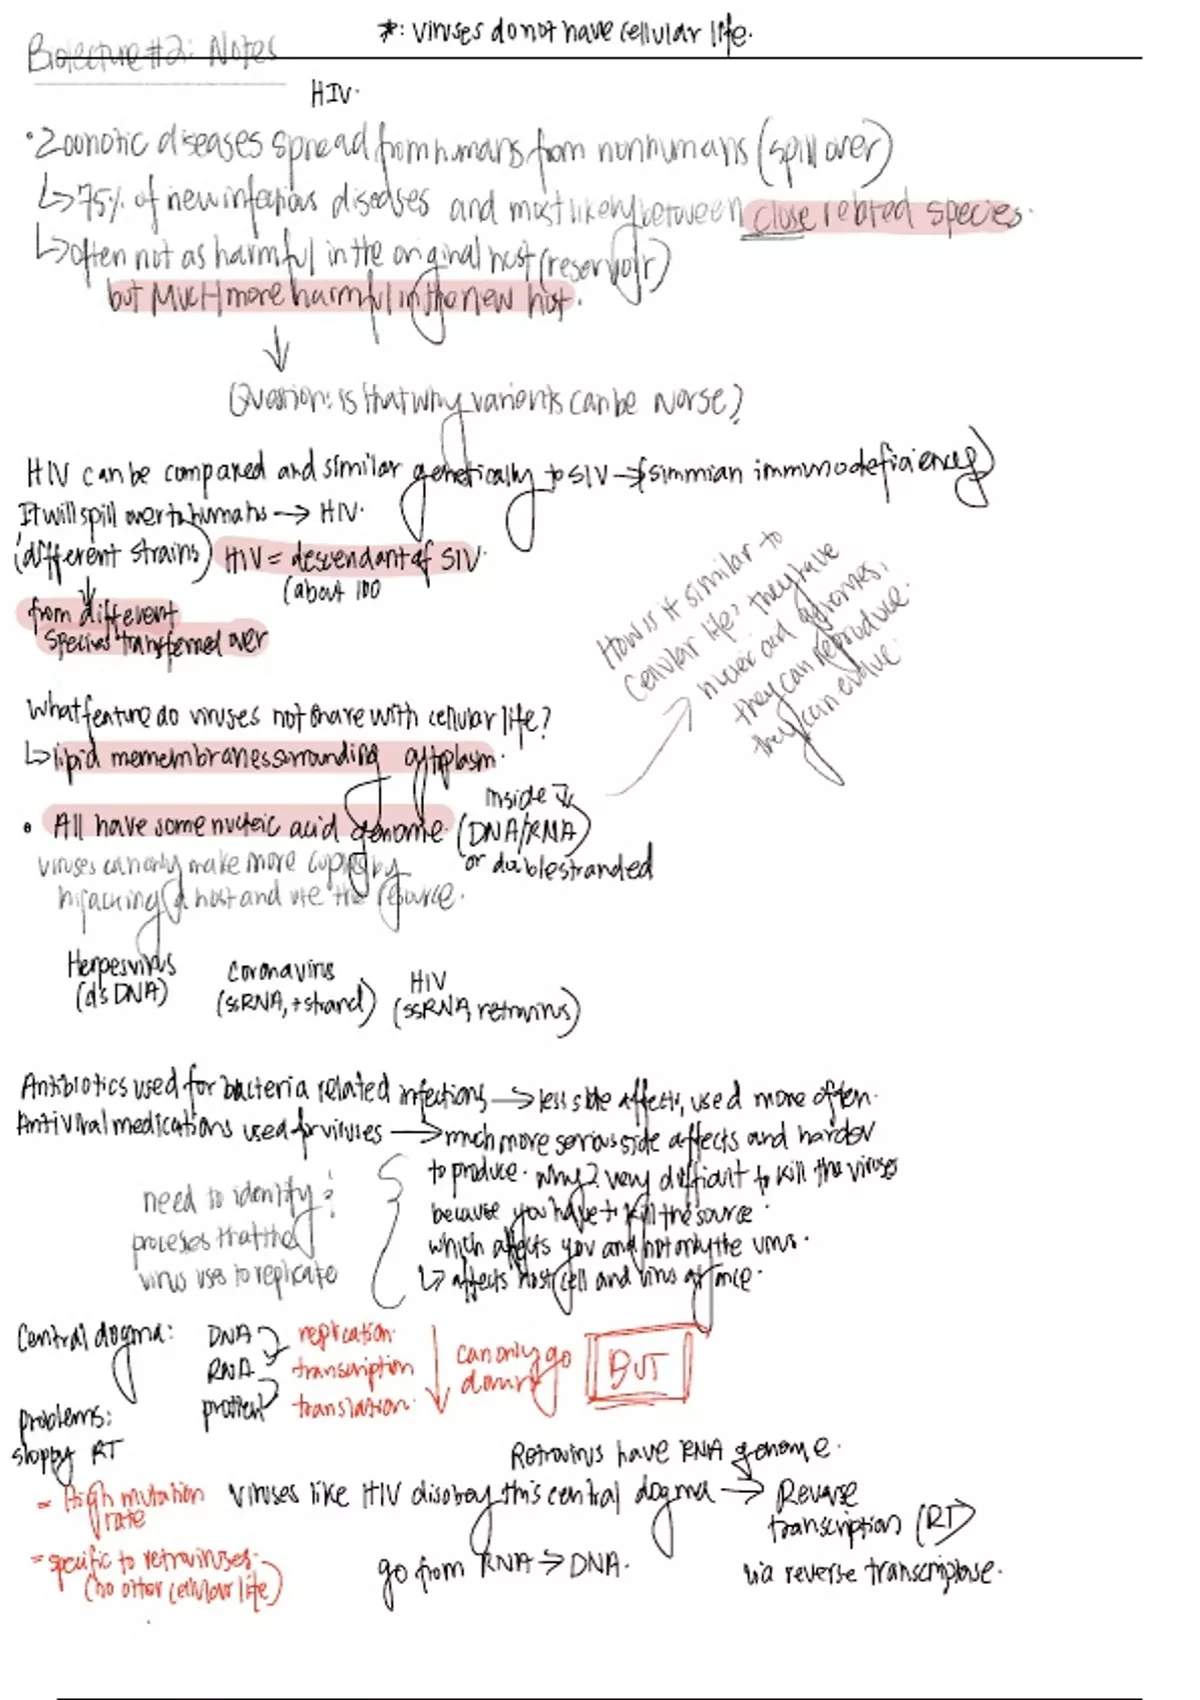 *: viruses do not have cellular life.
Biolecture #2: Notes
HIV.
• Zoonotic diseases spread from humans from nonhumans (spill over)
↳ 75% of new infectious diseases and most likely between close related species.
↳ often not as harmful in the original host (reservoir)
but MUCH more harmful in the new host.
↓
Question: is that why varients can be worse?
HIV can be compared and similar genetically to SIV → (simmian immunodeficiency)
It will spill over to humans → HIV.
(different strains) HIV = descendant of SIV.
(about 100
from different
species transferred over
How is it similar to
cellular life? they have
nucleic acid genomes,
they can reproduce.
they can evolve.
What feature do viruses not share with cellular life?
↳ lipid memembranes surrounding cytoplasm.
inside
• All have some nucleic acid genome. (DNA/RNA)
or doublestranded
viruses can only make more copies by
hijacking a host and use the resource.
Herpesvirus
(ds DNA)
Coronavirus
(ssRNA, + strand)
HIV
(ssRNA, retrovirus)
Antibiotics used for bacteria related infections → less side affects, used more often.
Antiviral medications used for viruses → much more serious side affects and harder
to produce. Why? very difficult to kill the viruses
because you have to kill the source.
which affects you and not only the virus.
↳ affects host cell and virus at once.
need to identify
proceses that the
virus uses to replicate
Central dogma:
DNA replication.
RNA transcription
protien translation.
↓ can only go
down
BUT
problems:
sloppy RT
Retrovirus have RNA genome.
- High mutation
rate
Viruses like HIV disobey this central dogma → Reverse
transcription (RT)
- specific to retroviruses.
(no other cellular life)
go from RNA → DNA.
via reverse transcriptase.